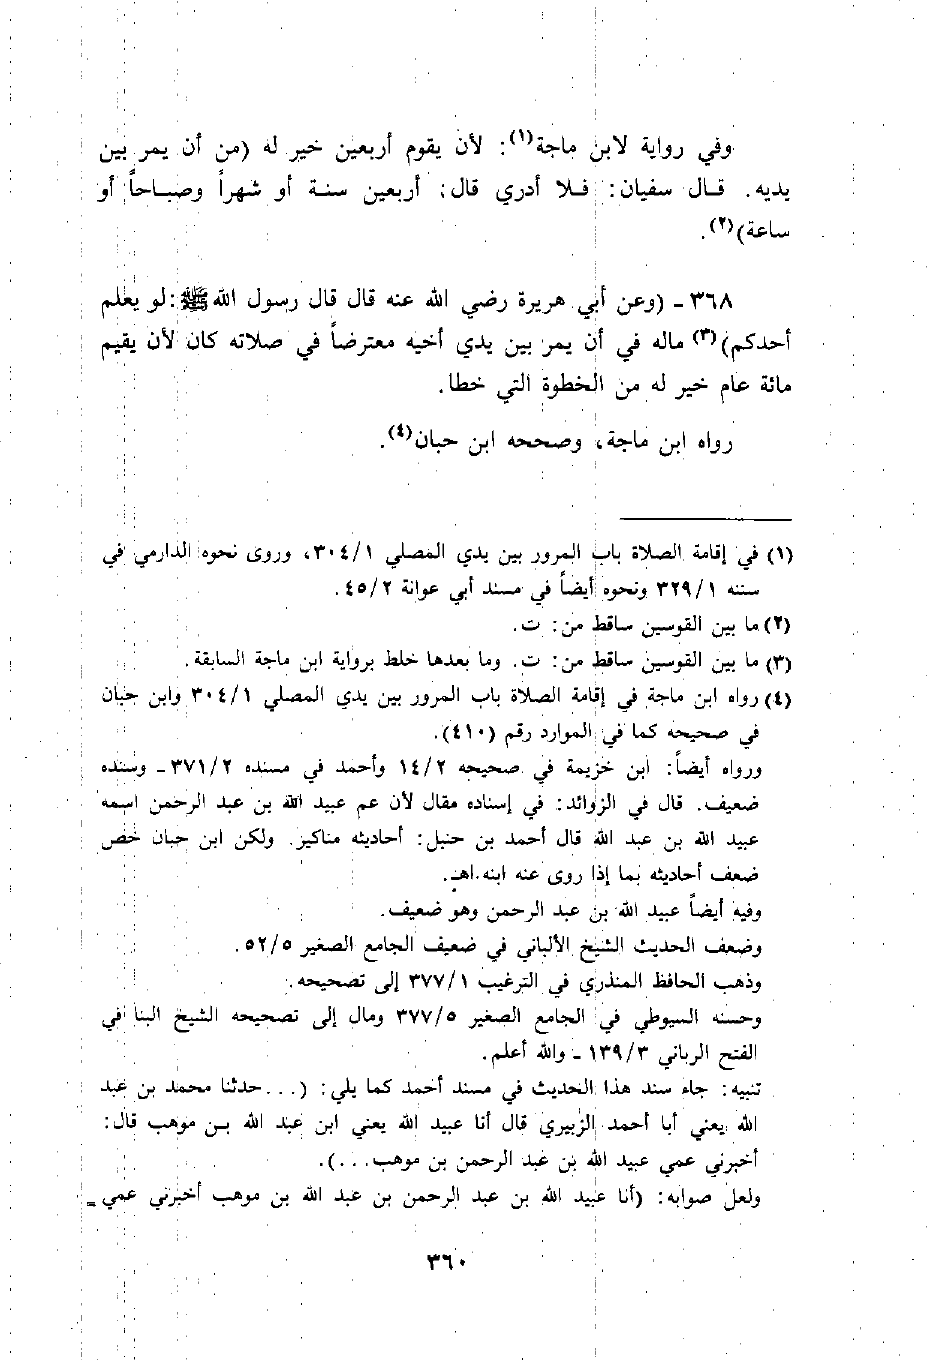 وفي رواية لابن ماجة(١): لأن يقوم أربعين خير له (من أن يمر بين
يديه. قال سفيان: فلا أدري قال: أربعين سنة أو شهراً وصباحاً أو
ساعة)(٢).
٣٦٨ ـ (وعن أبي هريرة رضي الله عنه قال قال رسول الله ﷺ: لو يعلم
أحدكم)(٣) ماله في أن يمر بين يدي أخيه معترضاً في صلاته كان لأن يقيم
مائة عام خير له من الخطوة التي خطا.
رواه ابن ماجة، وصححه ابن حبان(٤).
(١) في إقامة الصلاة باب المرور بين يدي المصلي ٣٠٤/١، وروى نحوه الدارمي في
سننه ٣٢٩/١ ونحوه أيضاً في مسند أبي عوانة ٤٥/٢.
(٢) ما بين القوسين ساقط من: ت.
(٣) ما بين القوسين ساقط من: ت. وما بعدها خلط برواية ابن ماجة السابقة.
(٤) رواه ابن ماجة في إقامة الصلاة باب المرور بين يدي المصلي ٣٠٤/١ وابن حبان
في صحيحه كما في الموارد رقم (٤١٠).
ورواه أيضاً: ابن خزيمة في صحيحه ١٤/٢ وأحمد في مسنده ٣٧١/٢ ـ وسنده
ضعيف. قال في الزوائد: في إسناده مقال لأن عم عبيد الله بن عبد الرحمن اسمه
عبيد الله بن عبد الله قال أحمد بن حنبل: أحاديثه مناكير. ولكن ابن حبان خص
ضعف أحاديثه بما إذا روى عنه ابنه.اهـ.
وفيه أيضاً عبيد الله بن عبد الرحمن وهو ضعيف.
وضعف الحديث الشيخ الألباني في ضعيف الجامع الصغير ٥٢/٥.
وذهب الحافظ المنذري في الترغيب ٣٧٧/١ إلى تصحيحه.
وحسنه السيوطي في الجامع الصغير ٣٧٧/٥ ومال إلى تصحيحه الشيخ البنا في
الفتح الرباني ١٣٩/٣ ـ والله أعلم.
تنبيه: جاء سند هذا الحديث في مسند أحمد كما يلي: (...حدثنا محمد بن عبد
الله يعني أبا أحمد الزبيري قال أنا عبيد الله يعني ابن عبد الله بن موهب قال:
أخبرني عمي عبيد الله بن عبد الرحمن بن موهب...).
ولعل صوابه: (أنا عبيد الله بن عبد الرحمن بن عبد الله بن موهب أخبرني عمي =
٣٦٠